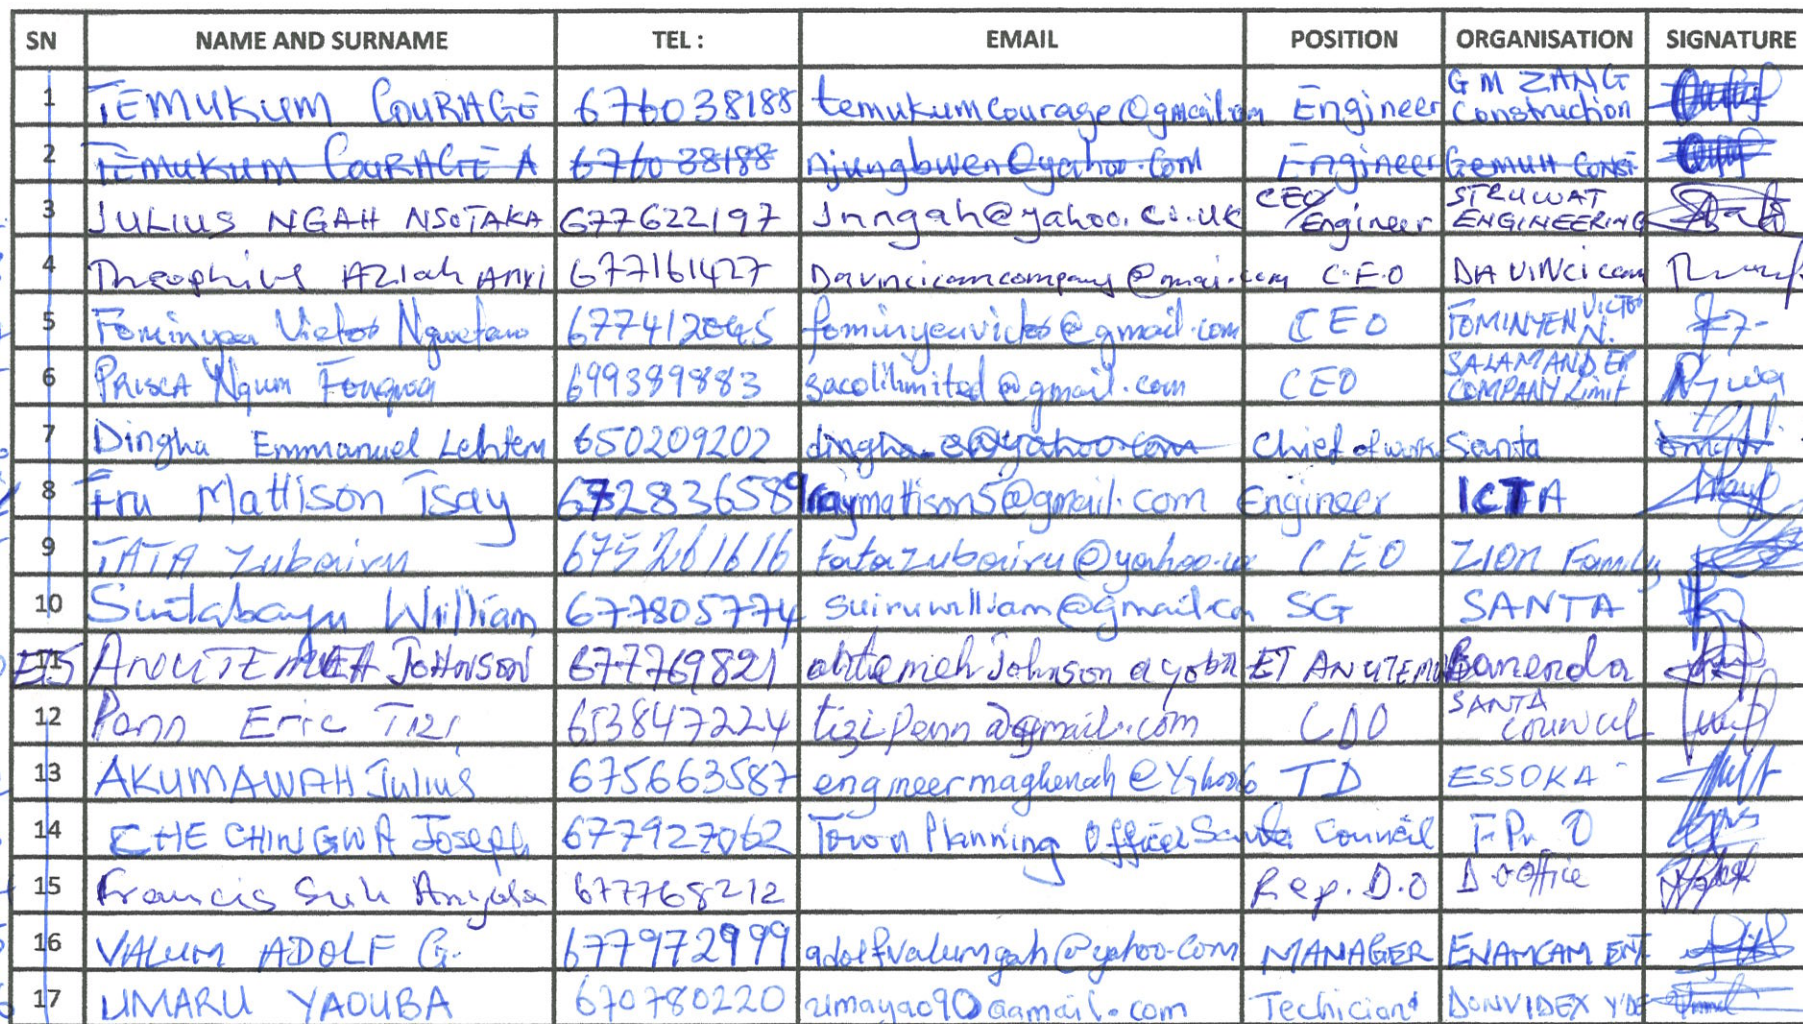 SN NAME AND SURNAME TEL : EMAIL POSITION ORGANISATION SIGNATURE
1 TEMUKUM COURAGE 676038188 temukumcourage@gmail.com Engineer GM ZANG Construction
2 TEMUKUM COURAGE A 676038188 njungbwen@yahoo.com Engineer Gemuh Const
3 JULIUS NGAH NSOTAKA 677622197 Jnngah@yahoo.co.uk CEO/Engineer STRUWAT ENGINEERING
4 Theophilus Aziah Anyi 677161427 Davincicamcompany@mai.com C.E.O DA VINCi cam
5 Fominyen Victor 677412045 fominyenvictor@gmail.com CEO FOMINYEN VICTOR N.
6 PRISCA Ngum 699389883 sacolilimited@gmail.com CEO SALAMANDER COMPANY Limit
7 Dingha Emmanuel 650209202 dingha.e@yahoo.com Chief of work Santa
8 Fru Mattison Tsay 672836589 raymattison5@gmail.com Engineer ICTA
9 TATA Zubairu 675261616 tatazubairu@yahoo.co CEO ZION Family
10 William 677805774 suiruwilliam@gmail.co SG SANTA
11 ETS ANUTEMEH JOHNSON 677769821 Johnson ET ANUTEM Bamenda
12 Penn Eric Tizi 653847224 tizipenn@gmail.com CDO SANTA COUNCIL
13 AKUMAWAH Julius 675663587 TD ESSOKA
14 CHE CHINGWA Joseph 677927062 Town Planning Officer Santa Council
15 Francis Suh 677768212 Rep. D.O D.O Office
16 VALUM ADOLF G. 677972999 adolfvalumgah@yahoo.com MANAGER ENAMCAM ENT
17 UMARU YAOUBA 670780220 umayao90@gmail.com Techician DONVIDEX Y'DE